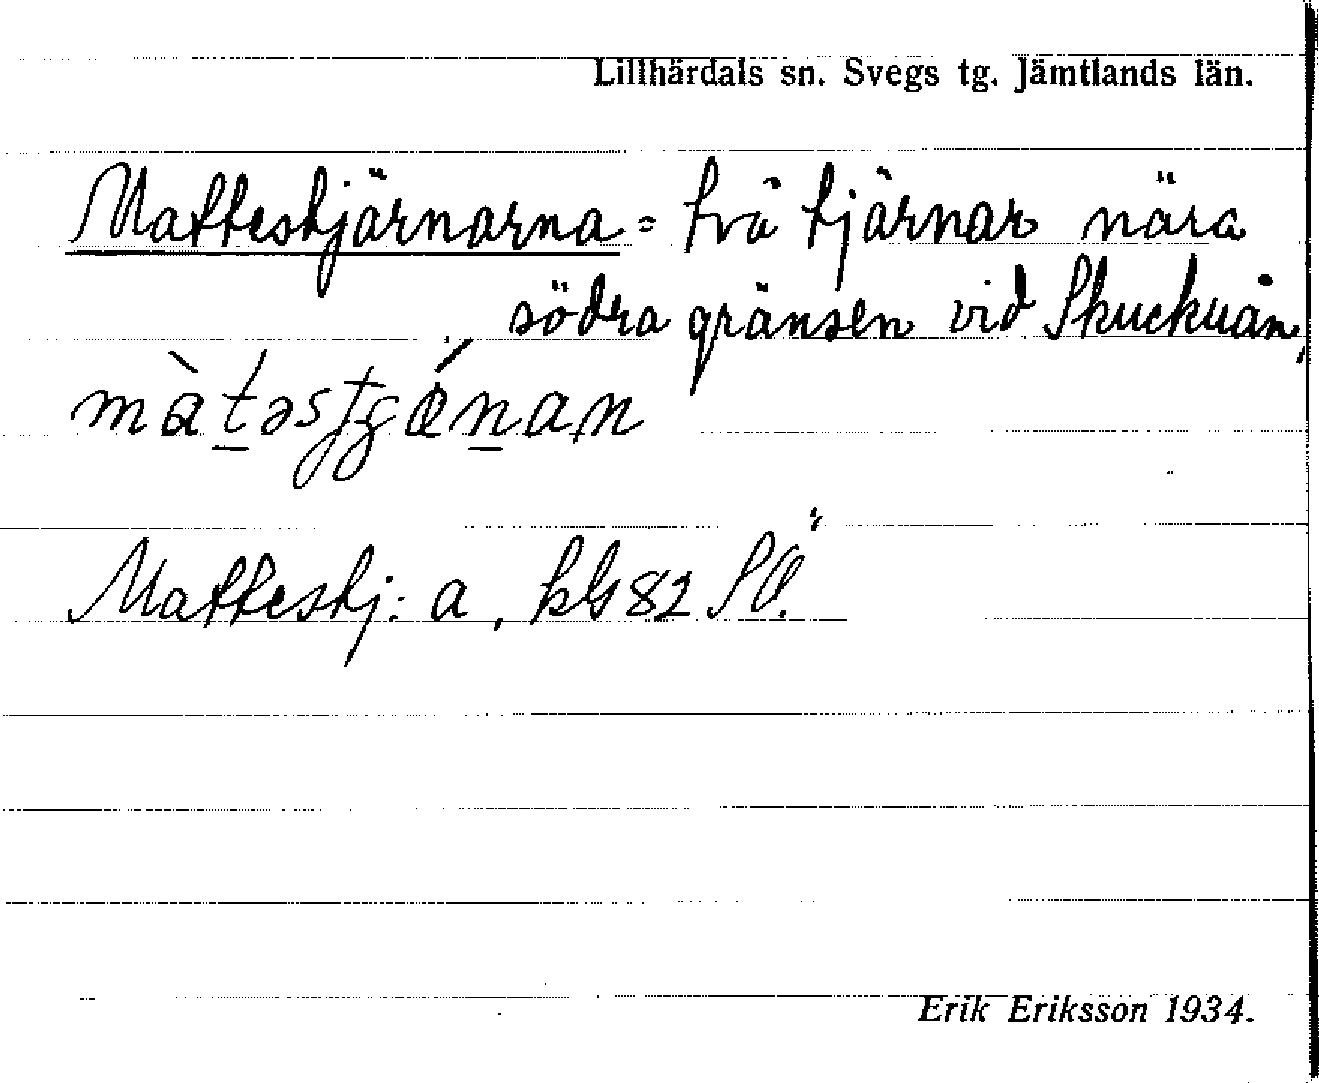 Lillhärdals sn. Svegs tg. Jämtlands län.
Mattestjärnarna = två tjärnar nära
södra gränsen vid Skuckuån,
Mattestj: a, kbl 82 SÖ.
Erik Eriksson 1934.